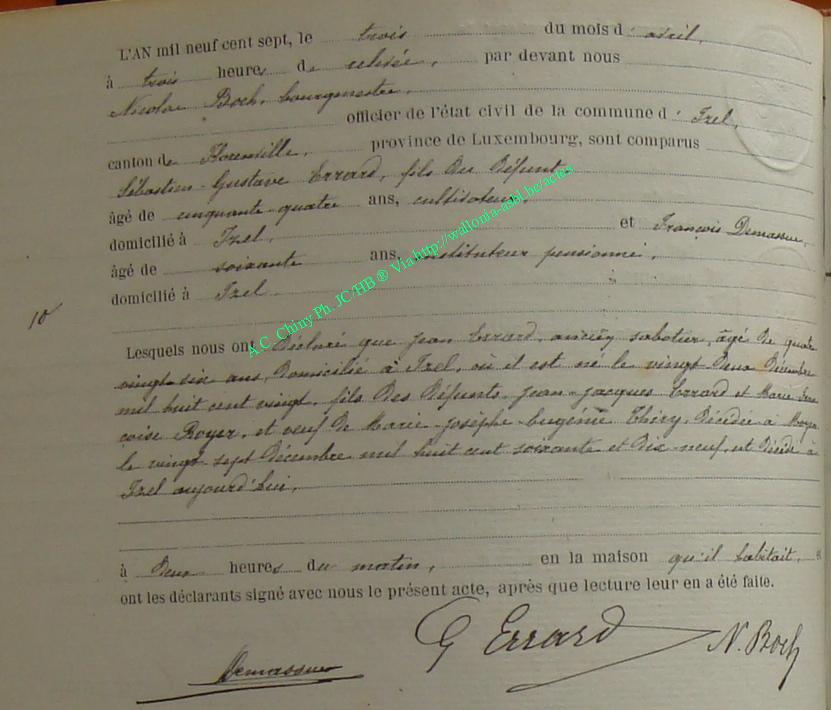 L'AN mil neuf cent sept, le trois du mois d'avril,
à trois heures de relevée, par devant nous
Nicolas Boch, bourgmestre,
officier de l'état civil de la commune d'Izel,
canton de Florenville, province de Luxembourg, sont comparus
Sébastien-Gustave Errard, fils du défunt
âgé de cinquante-quatre ans, cultivateur,
domicilié à Izel, et François Demasure,
âgé de soixante ans, instituteur pensionné,
domicilié à Izel
10
Lesquels nous ont déclaré que Jean Errard, ancien sabotier, âgé de quatre
vingt-six ans, domicilié à Izel, où il est né le vingt deux décembre
mil huit cent vingt, fils des défunts Jean-Jacques Errard et Marie Fran
çoise Royer, et veuf de Marie-Josèphe-Eugénie Thiry, décédée à Moyen
le vingt-sept décembre mil huit cent soixante et dix-neuf, est décédé à
Izel aujourd'hui,
à deux heures du matin, en la maison qu'il habitait, et
ont les déclarants signé avec nous le présent acte, après que lecture leur en a été faite.
G Errard N. Boch
Demasure
A.C. Chiny Ph. JC/HB ® Via http://wallonia-asbl.be/actes